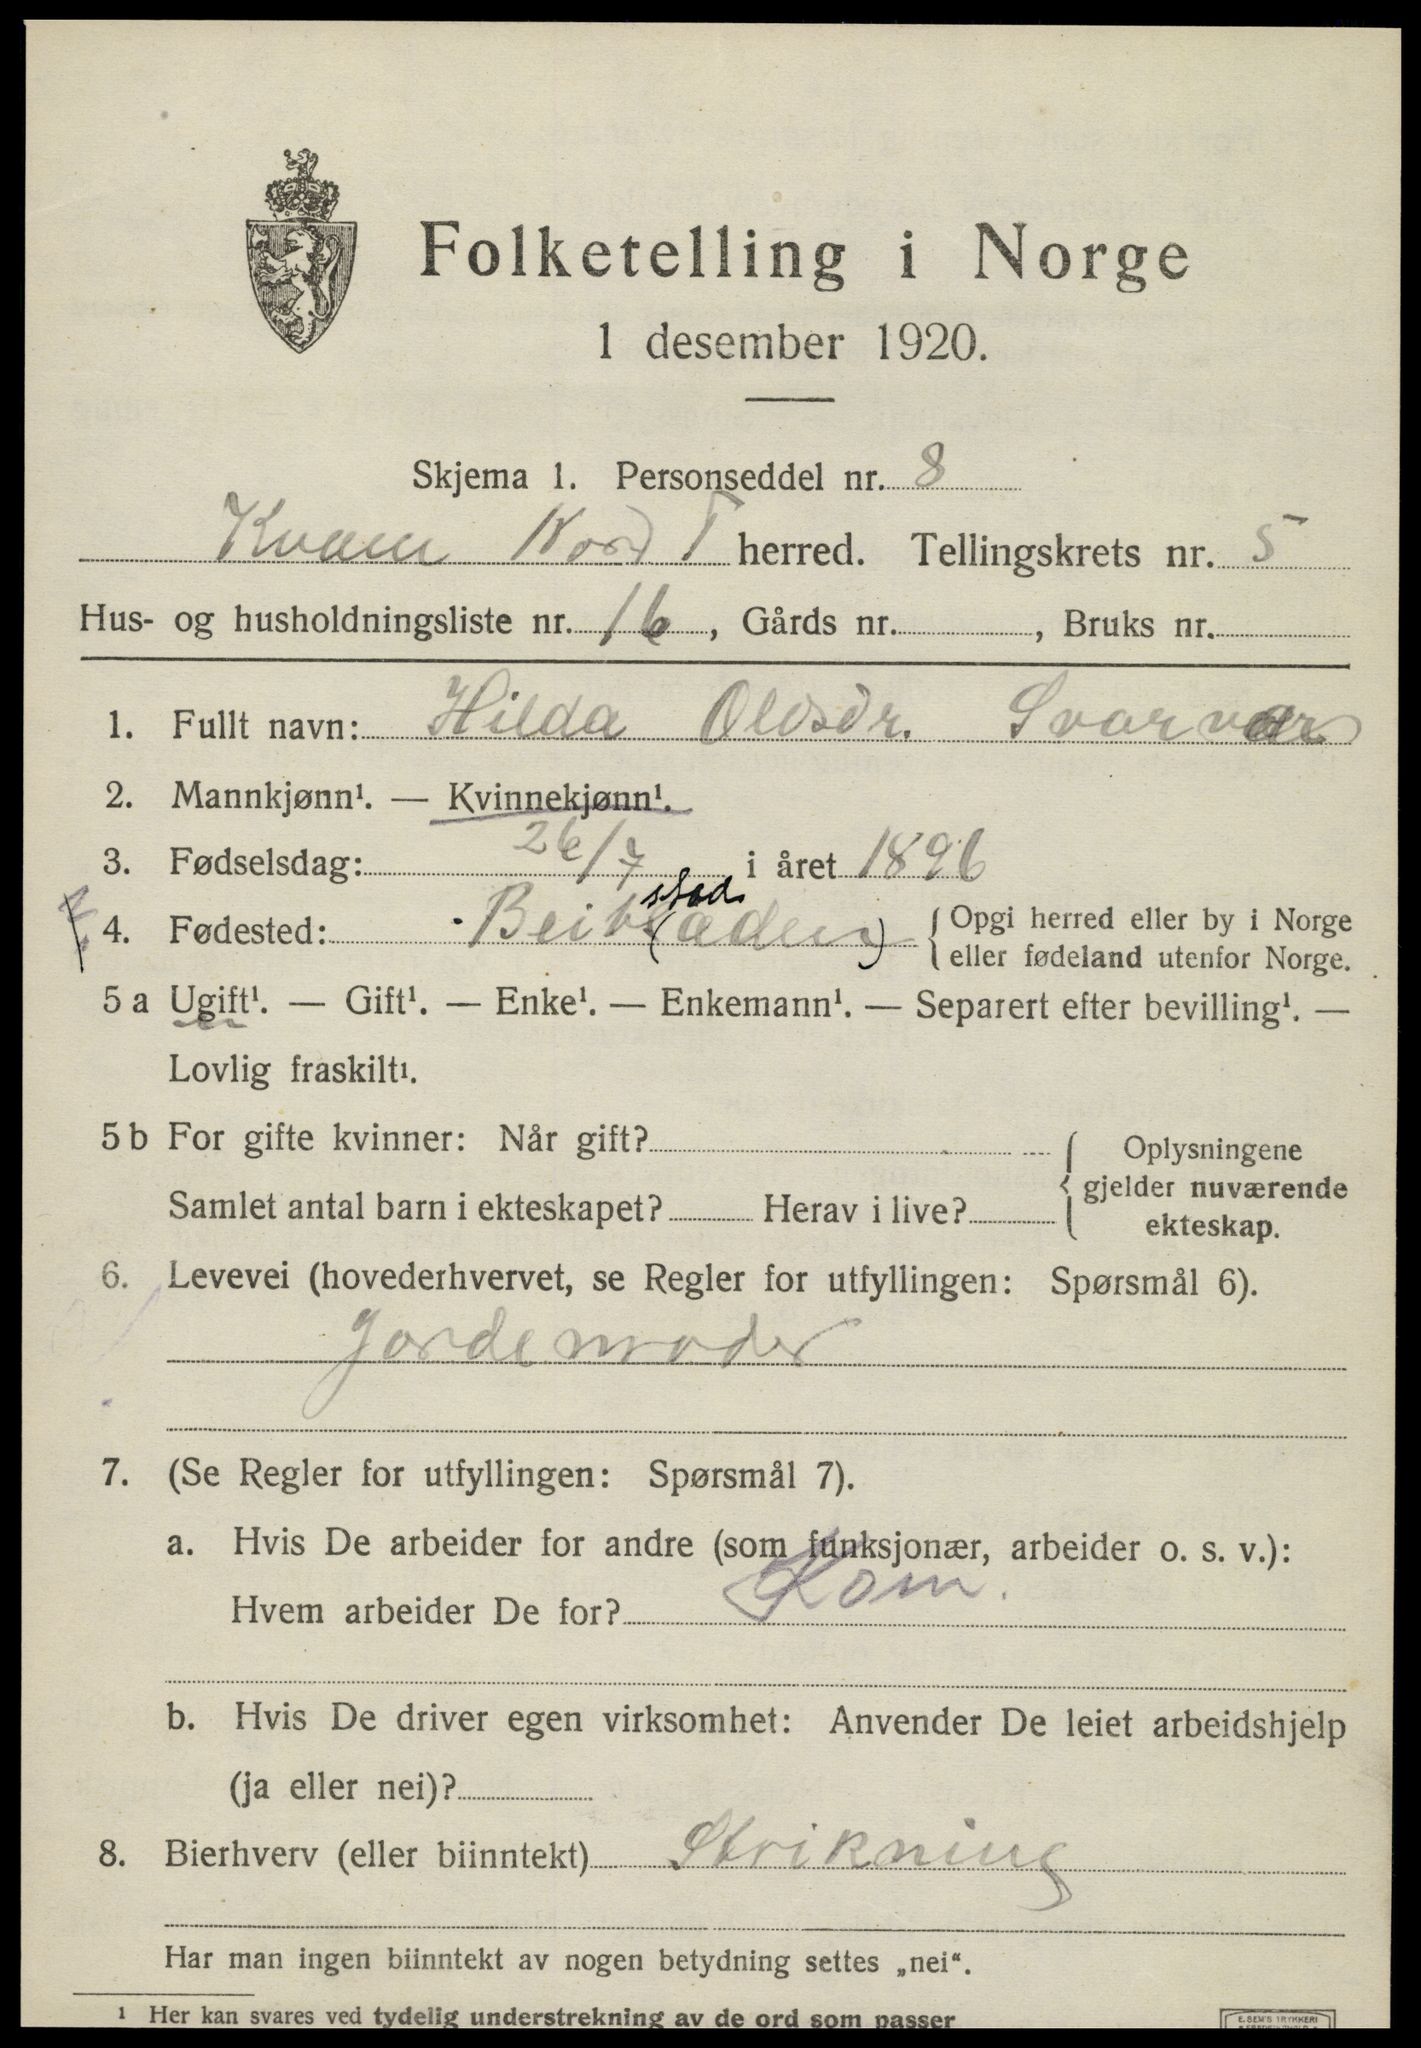 Folketelling i Norge
1 desember 1920.
Skjema 1. Personseddel nr. 8
Kvam Nord T herred. Tellingskrets nr. 5
Hus- og husholdningsliste nr. 16, Gårds nr. , Bruks nr.
1. Fullt navn: Hilda Olosdr.
2. Mannkjønn¹. — Kvinnekjønn¹.
3. Fødselsdag: 26/7 i året 1896
stad
4. Fødested: Beits(aden) { Opgi herred eller by i Norge
eller fødeland utenfor Norge.
5 a Ugift¹. — Gift¹. — Enke¹. — Enkemann¹. — Separert efter bevilling¹. —
Lovlig fraskilt¹.
5 b For gifte kvinner: Når gift? { Oplysningene
gjelder nuværende
Samlet antal barn i ekteskapet? Herav i live? ekteskap.
6. Levevei (hovederhvervet, se Regler for utfyllingen: Spørsmål 6).
Jordemoder
7. (Se Regler for utfyllingen: Spørsmål 7).
a. Hvis De arbeider for andre (som funksjonær, arbeider o. s. v.):
Hvem arbeider De for? Kom.
b. Hvis De driver egen virksomhet: Anvender De leiet arbeidshjelp
(ja eller nei)?
8. Bierhverv (eller biinntekt) Strikning
Har man ingen biinntekt av nogen betydning settes „nei“.
¹ Her kan svares ved tydelig understrekning av de ord som passer
E. SEM'S TRYKKERI